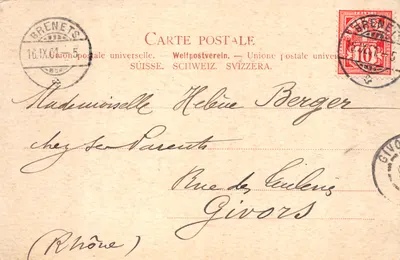 BRENETS
16.IX.01. 5
CARTE POSTALE.
Union postale universelle. — Weltpostverein. — Union postale universelle.
SUISSE. SCHWEIZ. SVIZZERA.
10
BRENETS
Mademoiselle Helène Berger
chez ses Parents
Rue des
Givors
GIVO
(Rhône)